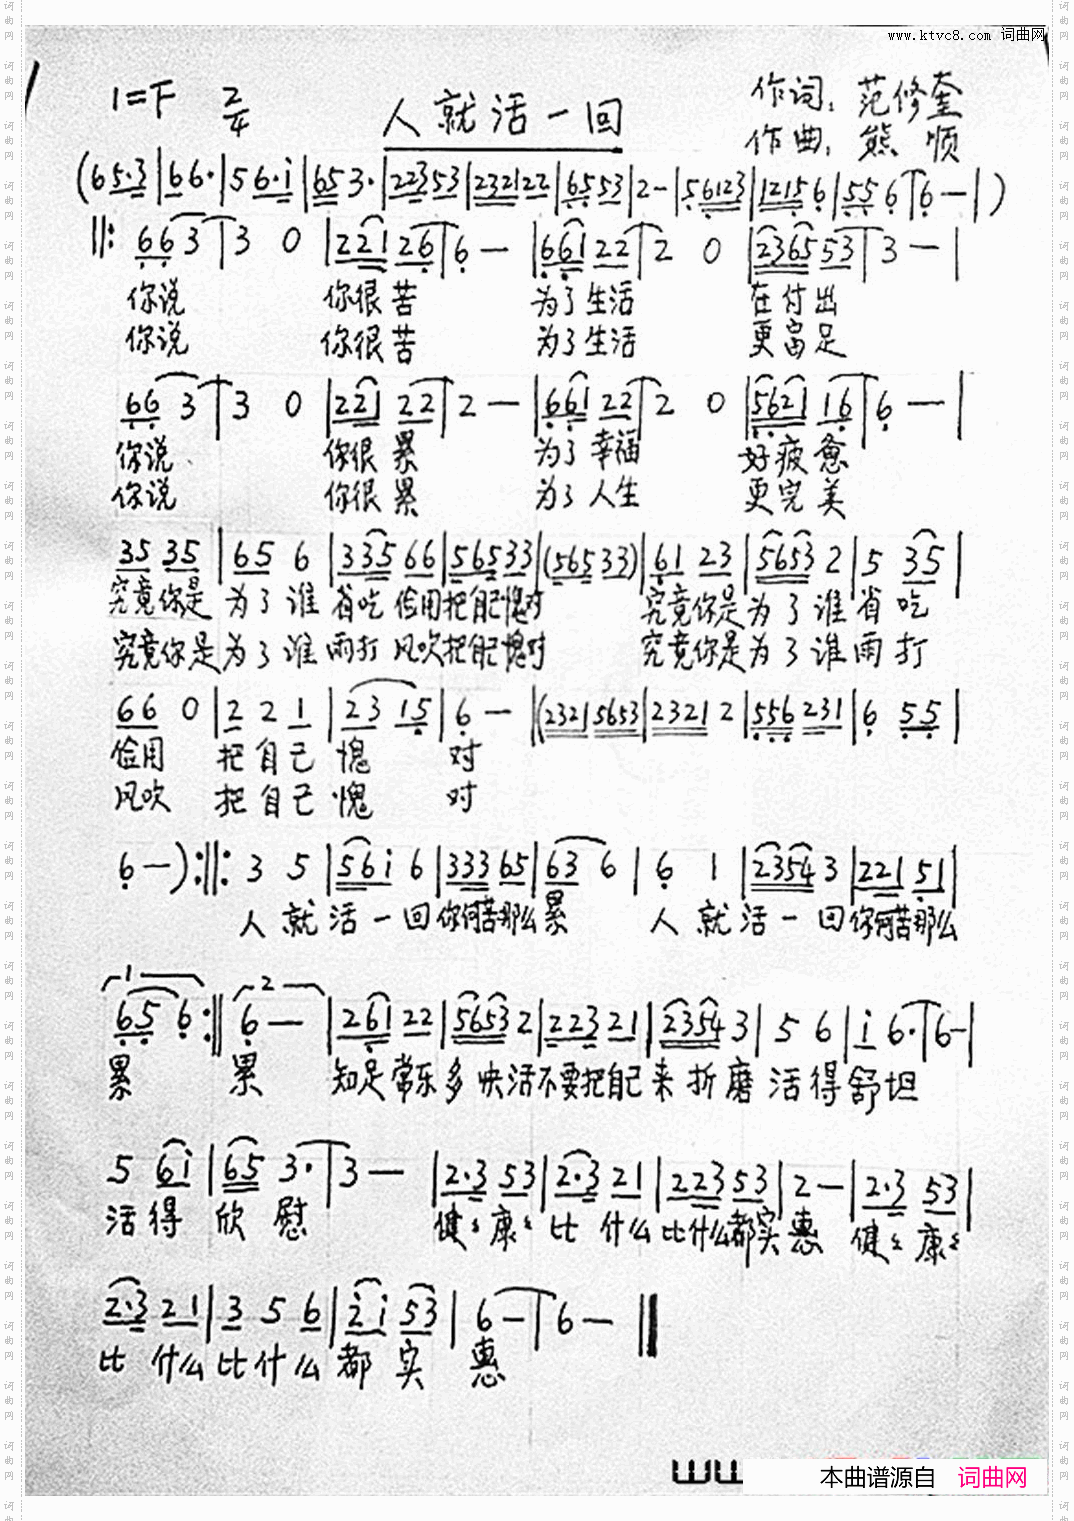 www.ktvc8.com 词曲网
1=F 2/4
人就活一回
作词：范修奎
作曲：熊顺
(65·3|66·|56·i|653·|22353|232122|6553|2-|56123|12156|556|6-|)
||: 663|30|22126|6-|66122|20|236553|3-|
你说 你很苦 为了生活 在付出
你说 你很苦 为了生活 更富足
663|30|22122|2-|66122|20|562116|6-|
你说 你很累 为了幸福 好疲惫
你说 你很累 为了人生 更完美
3535|656|33566|56533|(56533)|6123|56532|535|
究竟你是为了谁省吃俭用把自己愧对 究竟你是为了谁省吃
究竟你是为了谁雨打风吹把自己愧对 究竟你是为了谁雨打
660|221|2315|6-|(23215653|23212|556231|655|
俭用 把自己愧 对
风吹 把自己愧 对
6-):||: 35|56i6|33365|636|61|23543|22151|
人就活一回你何苦那么累 人就活一回你何苦那么
1 2
656:||6-|26122|56532|22321|23543|56|i6·|6-|
累 累 知足常乐多快活不要把自己来折磨活得舒坦
56i|653·|3-|2·353|2·321|22353|2-|2·353|
活得欣慰 健々康々比什么比什么都实惠 健々康々
2·321|356|2i53|6-|6-||
比什么比什么都实惠
本曲谱源自 词曲网